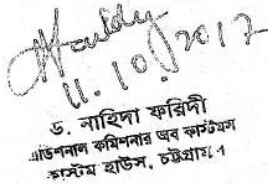 11.10.2017
ড. নাহিদা ফরিদী
এডিশনাল কমিশনার অব কাস্টমস
কাস্টম হাউস, চট্টগ্রাম।